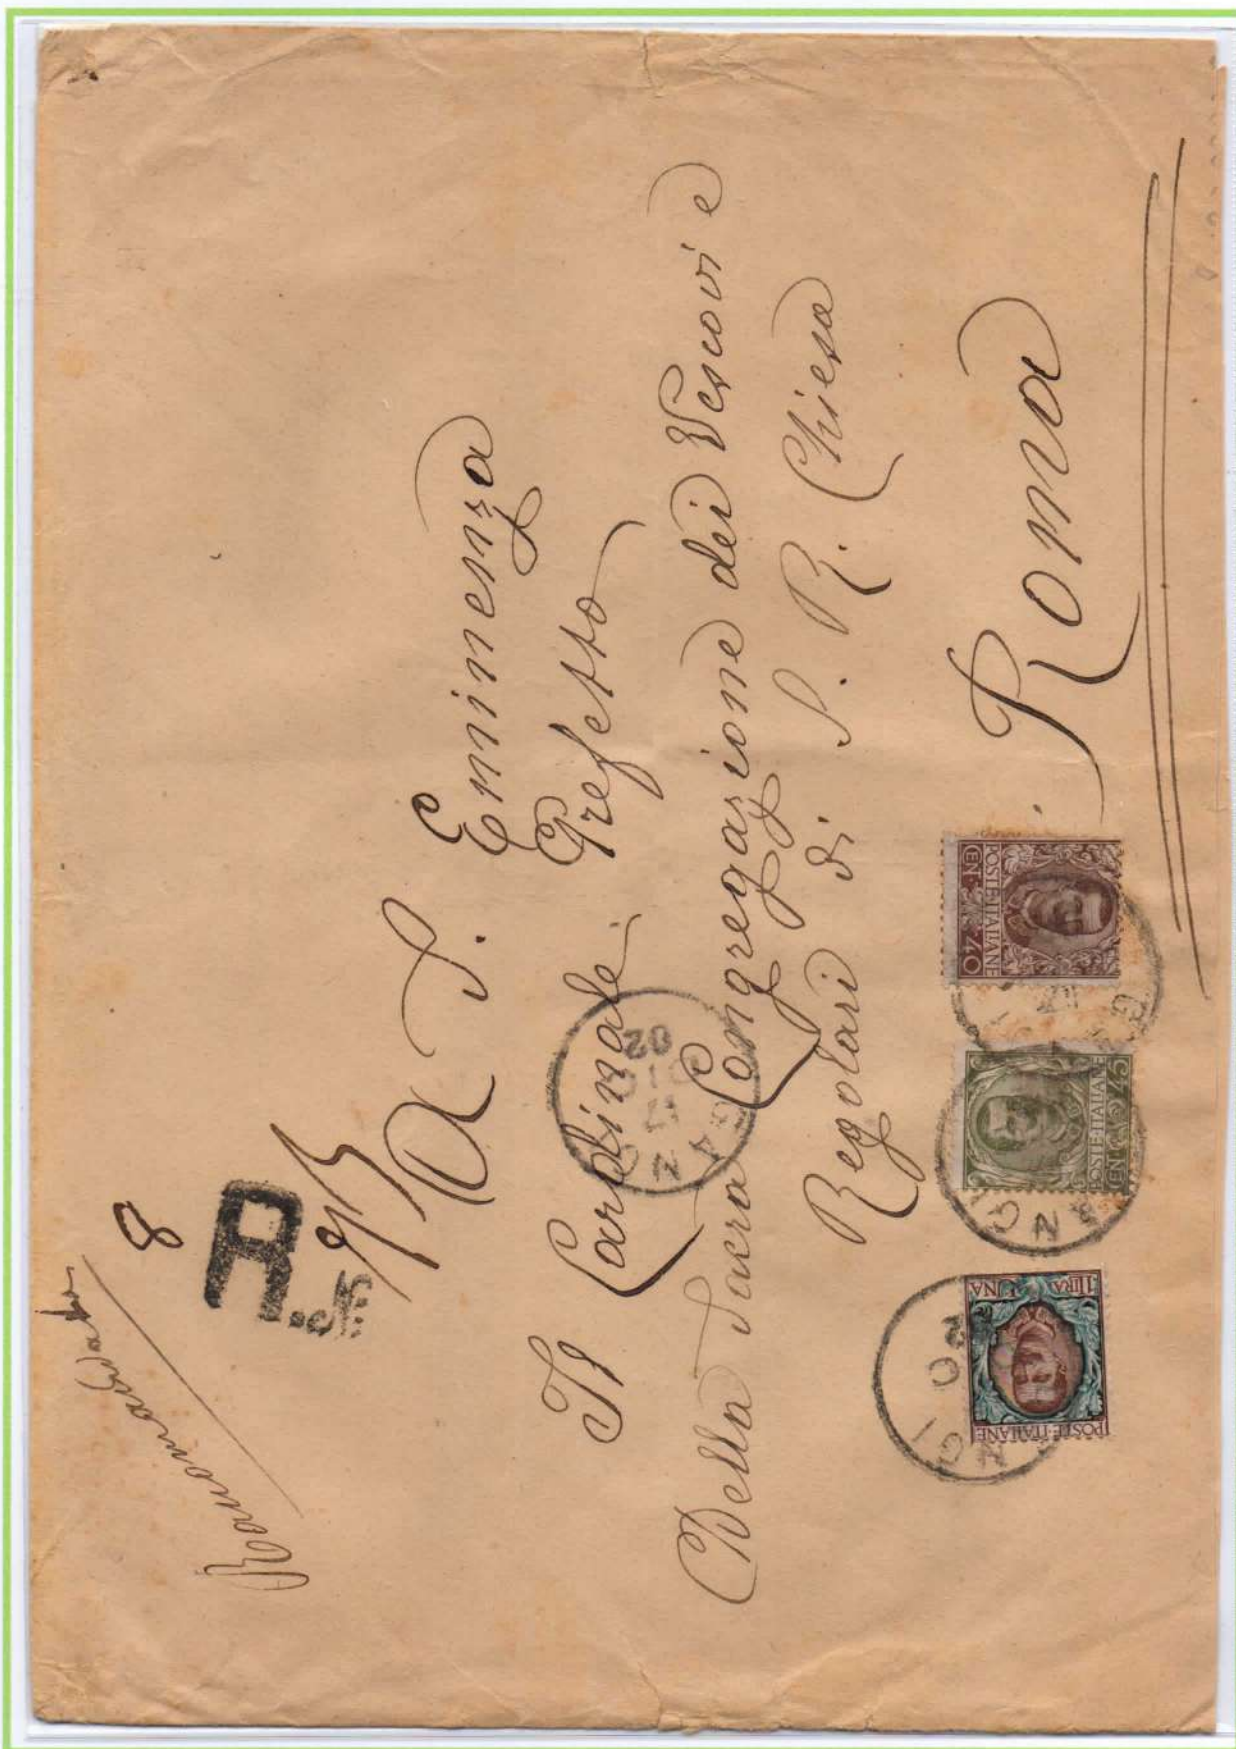 Raccomandata
8
R. N:
915
A S. Eminenza
Il Cardinale Prefetto
Della Sacra Congregazione dei Vescovi e
Regolari di S. R. Chiesa
Roma
17
DIC
02
POSTE ITALIANE
LIRA UNA
POSTE ITALIANE
CEN 45
POSTE ITALIANE
CEN 40